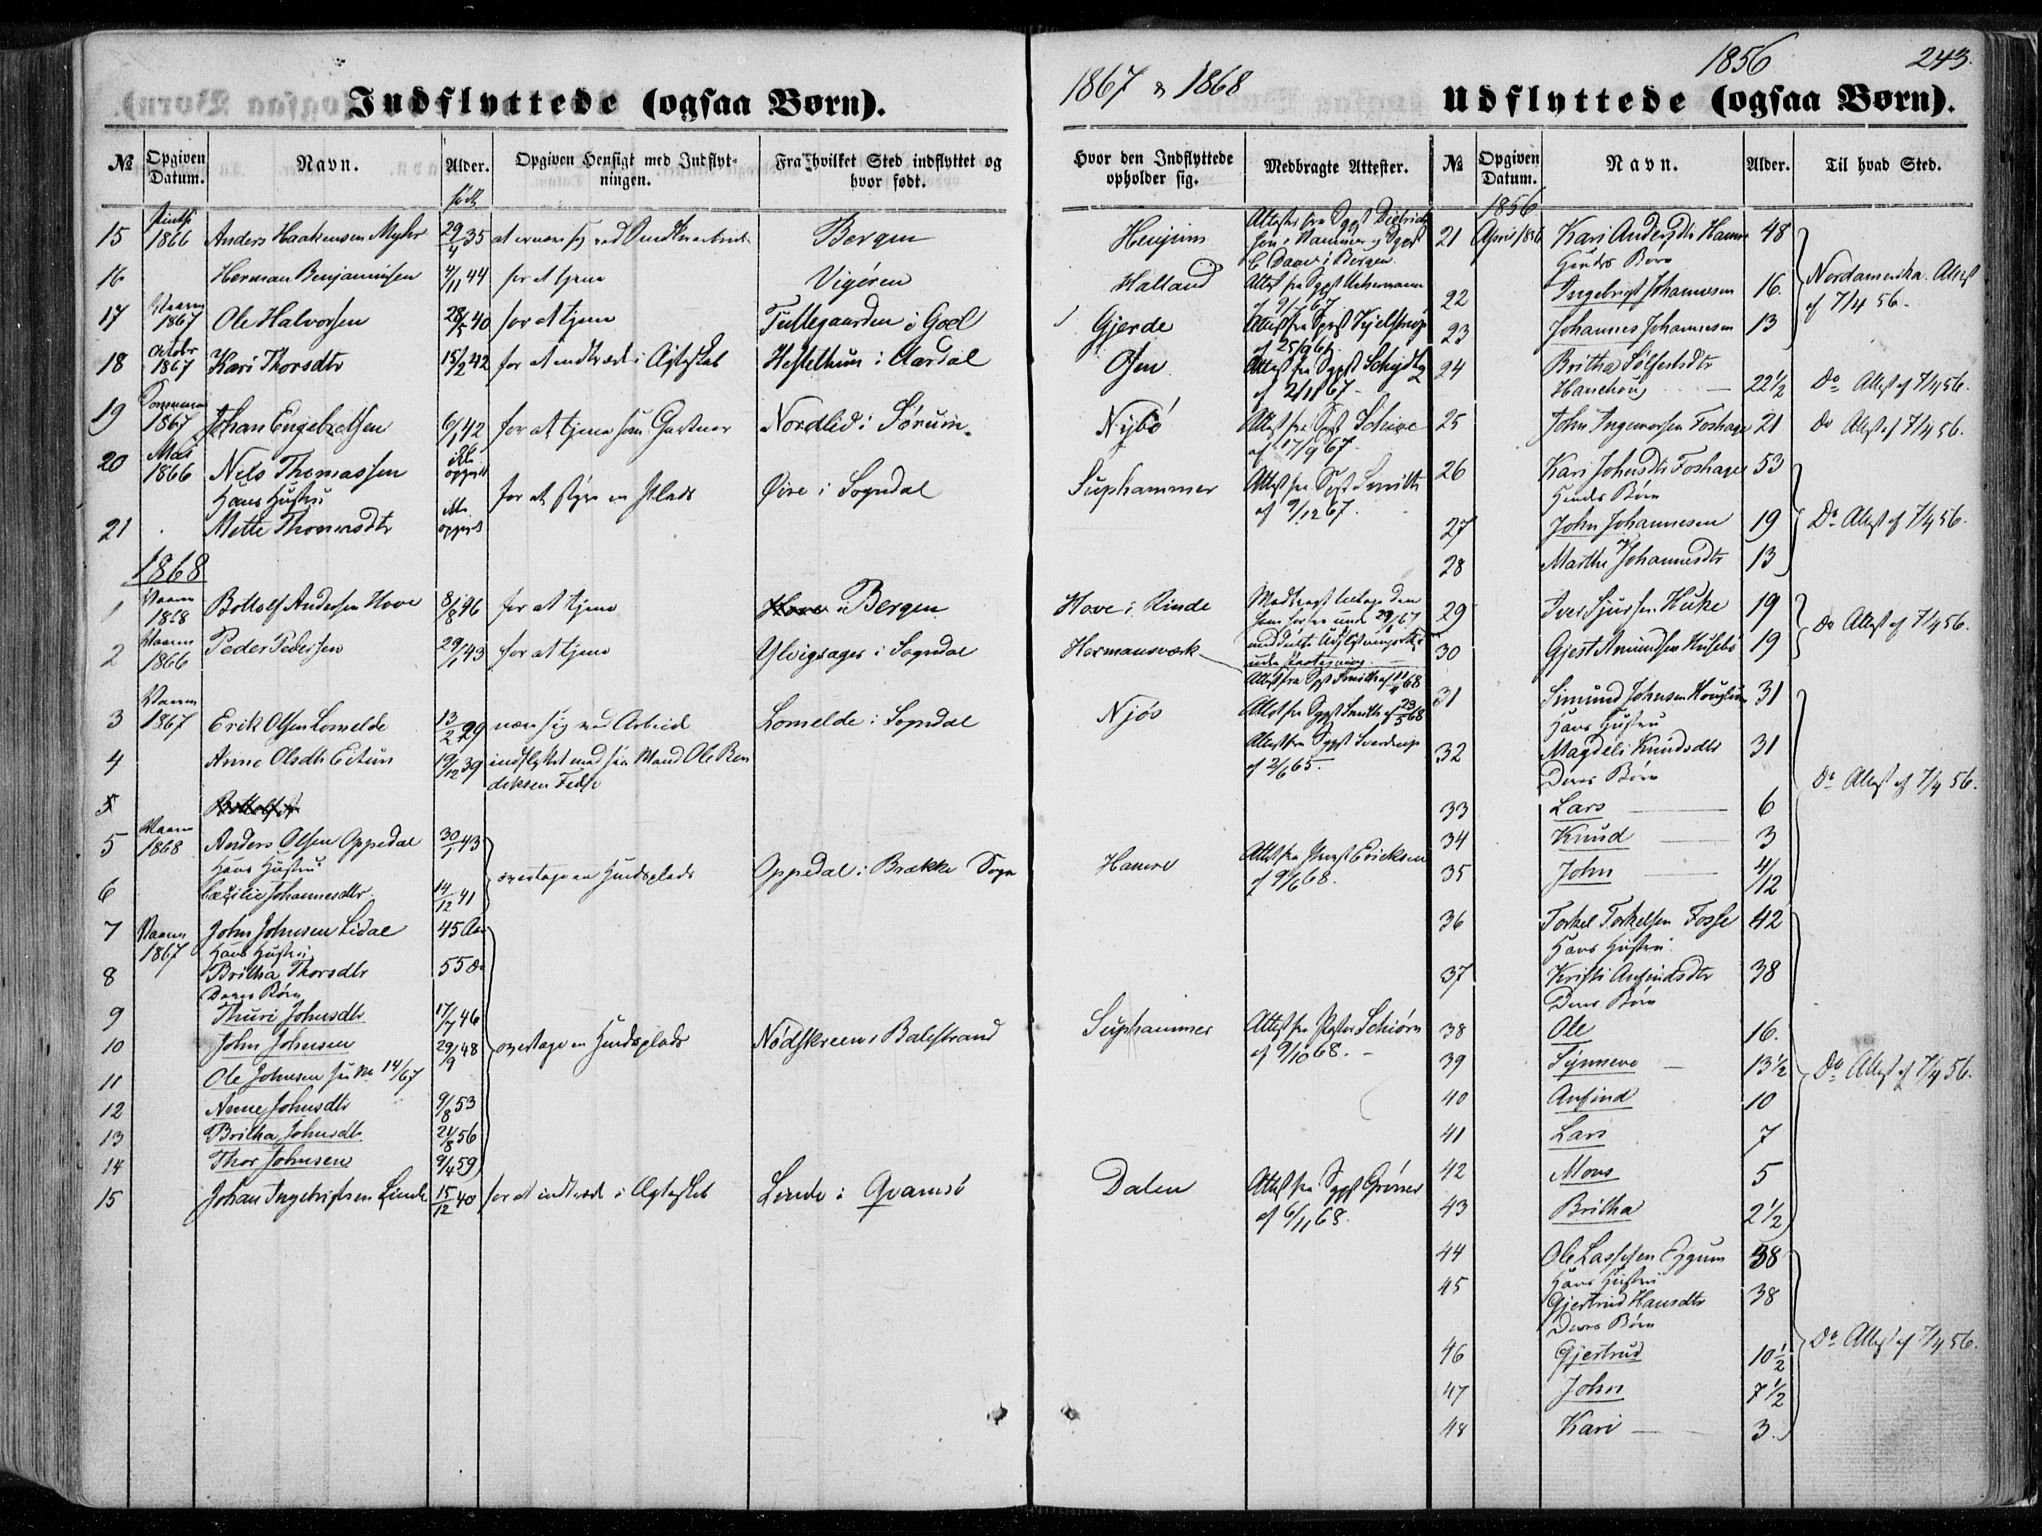 1856
243.
1867 & 1868
Indflyttede (ogsaa Børn).
Udflyttede (ogsaa Børn).
№ Opgiven Datum. Navn. Alder. Opgiven Hensigt med Indflytningen. Fra hvilket Sted indflyttet og hvor født. Hvor den Indflyttede opholder sig. Medbragte Attester.
født
15 1866 Anders Haakensen Myhr 29/4 35 Bergen Henjum
16 Herman Benjaminsen 4/11 44 for at tjene Vigøren Halland
17 Vaaren 1867 Ole Halvorsen 28/5 40 for at tjene Tuftegaarden i Goel Gjerde
18 October 1867 Kari Thorsdtr 15/2 42 for at indtræde i Ægteskab Hestethun i Aardal Osen
19 Sommeren 1867 Johan Engebretsen 6/1 42 for at tjene som Gartner Nordlid i Sørum. Nybø Attest fra Sgpst Schive af 17/9 67.
20 Mai 1866 Nils Thomassen ikke opgivet for at styre en Plads Øvre i Sogndal Suphammer Attest fra Sgpst Smith af 9/12 67.
Hans Hustru
21 Mette Thomasdtr ikke opgivet
1868
1 Vaaren 1868 Bottolf Andersen Hove 8/8 46 for at tjene i Bergen Hove i Rinde
2 Vaaren 1866 Peder Pedersen 29/1 43 for at tjene Ylvisager i Sogndal Hermansværk Attest fra Sgpst Smith af 11/4 68
3 Vaaren 1867 Erik Olsen Lomelde 13/2 29 nære sig ved Arbeide Lomelde i Sogndal Njøs Attest fra Sgpst Smith af 29/5 68
4 Anne Olsdtr Eitun 19/12 39 indflyttet med sin Mand Ole Bendiksen Attest fra Sgpst Sverdrup af 2/6 65.
5
5 Vaaren 1868 Anders Olsen Oppedal 30/1 43 overtage en Huusplads Oppedal i Brække Sogn Hamre Attest fra Prvst Ericksen af 9/6 68.
Hans Hustru
6 Cæcilie Johannesdtr 14/12 41
7 Vaaren 1867 John Johnsen Lidal 45 Aar
Hans Hustru
8 Britha Thorsdtr 55 Do
Deres Børn
9 Thuri Johnsdtr 17/7 46
10 John Johnsen 29/9 48 overtage en Huusplads Nødskreen i Balestrand Suphammer Attest fra Pastor Schiørn af 9/10 68.
11 Ole Johnsen see No 14/67
12 Anne Johnsdtr 9/8 53
13 Britha Johnsdtr 21/8 56
14 Thor Johnsen 9/4 59
15 Johan Ingebrigtsen Linde 15/12 40 for at indtræde i Ægteskab Linde i Qvamsø Dalen Attest fra Sgpst Grøner af 6/11 68.
№ Opgiven Datum. Navn. Alder. Til hvad Sted.
1856
21 April 1856 Kari Andersdtr Hamre 48
Hendes Børn
22 Ingebrigt Johannesen 16. Nordamerika. Attest af 7/4 56.
23 Johannes Johannesen 13
24 Britha Sølfestsdtr Hanehoug 22½ Do Attest af 7/4 56.
25 John Ingevorsen Foshage 21 Do Attest af 7/4 56.
26 Kari Johnsdtr Foshage 53
Hendes Børn
27 John Johannesen 19 Do Attest af 7/4 56.
28 Marthe Johannesdtr 13
29 Iver Sjursen Huke 19 Do Attest af 7/4 56.
30 Gjest Amundsen Husebø 19
31 Simund Johnsen 31
Hans Hustru
32 Magdeli Knudsdtr 31
Deres Børn Do Attest af 7/4 56.
33 Lars 6
34 Knud 3
35 John 4/12
36 Torkel Torkelsen Fosse 42
Hans Hustru
37 Kristi Anfindsdtr 38
Deres Børn
38 Ole 16.
39 Synneve 13½ Do Attest af 7/4 56.
40 Anfind 10
41 Lars 7
42 Mons 5
43 Britha 2½
44 Ole Lassesen Eggum 38
Hans Hustru
45 Gjertrud Hansdtr 38
Deres Børn Do Attest af 7/4 56.
46 Gjertrud 10½
47 John 7½
48 Kari 3.